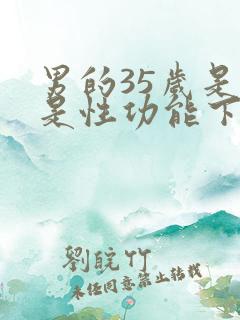 男的35岁是
是性功能下
劉皖竹
未经同意禁止转载